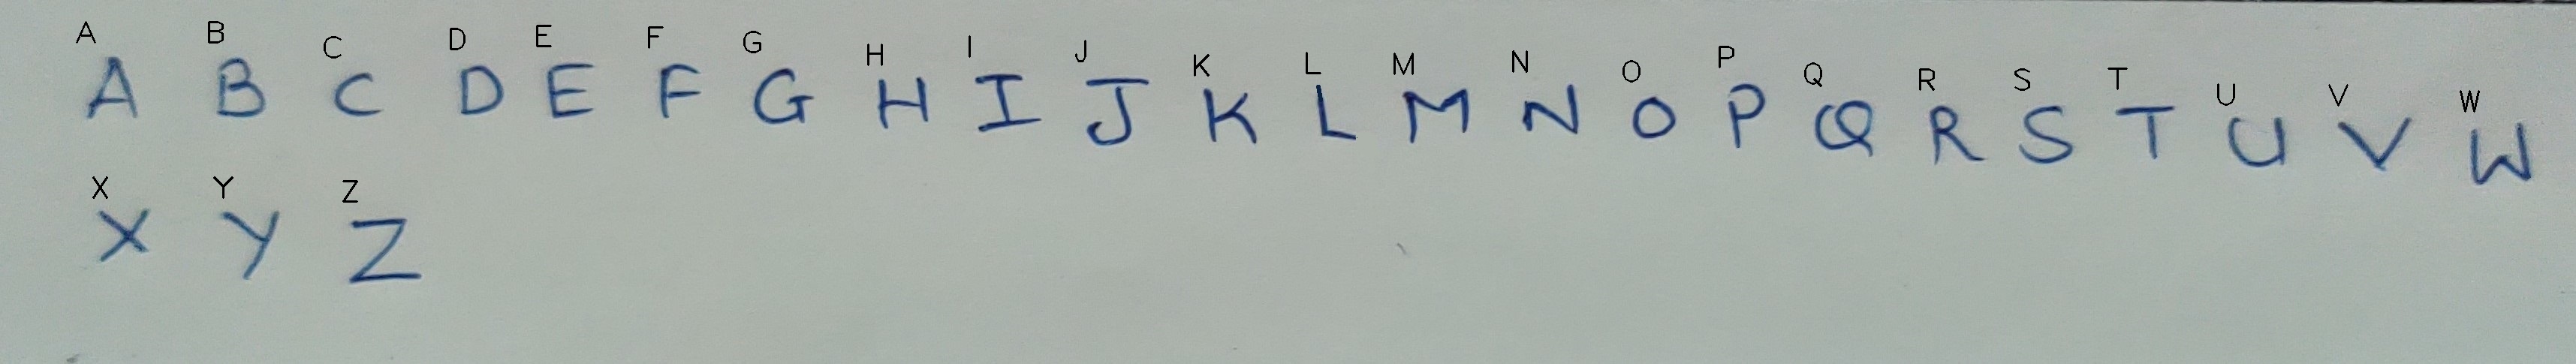 A B C D E F G H I J K L M N O P Q R S T U V W
A B C D E F G H I J K L M N O P Q R S T U V W
X Y Z
X Y Z